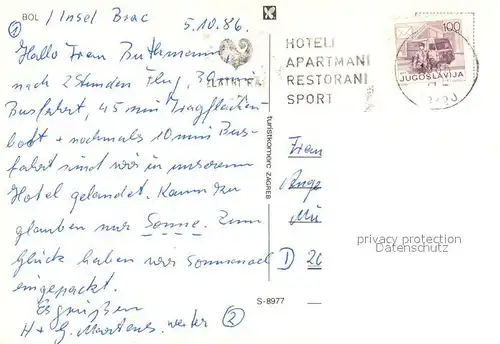 BOL / Insel Brac
5.10.86.
① Hallo Frau Buthmann,
nach 2 Stunden Flug,
Busfahrt, 45 min Tragflächen-
boot + nochmals 10 min Bus-
fahrt sind wir in unserem
Hotel gelandet. Kaum zu
glauben nur Sonne. Zum
Glück haben wir Sonnenoel
eingepackt.
Es grüßen
H + G. Martens. weiter ②
turistkomerc ZAGREB
S-8977
HOTELI
APARTMANI
RESTORANI
SPORT
100
JUGOSLAVIJA
Frau
Ange
Mü
D 20
privacy protection
Datenschutz